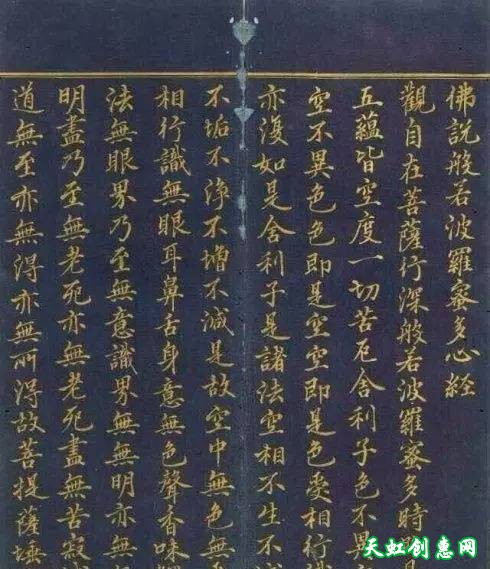 佛説般若波羅蜜多心経
觀自在菩薩行深般若波羅蜜多時
五蘊皆空度一切苦厄舍利子色不異
空不異色色即是空空即是色受相行
亦復如是舍利子是諸法空相不生不
不垢不淨不增不減是故空中無色無
相行識無眼耳鼻舌身意無色聲香味
法無眼界乃至無意識界無無明亦無
明盡乃至無老死亦無老死盡無苦寂
道無至亦無得亦無所得故菩提薩埵
天虹创意网